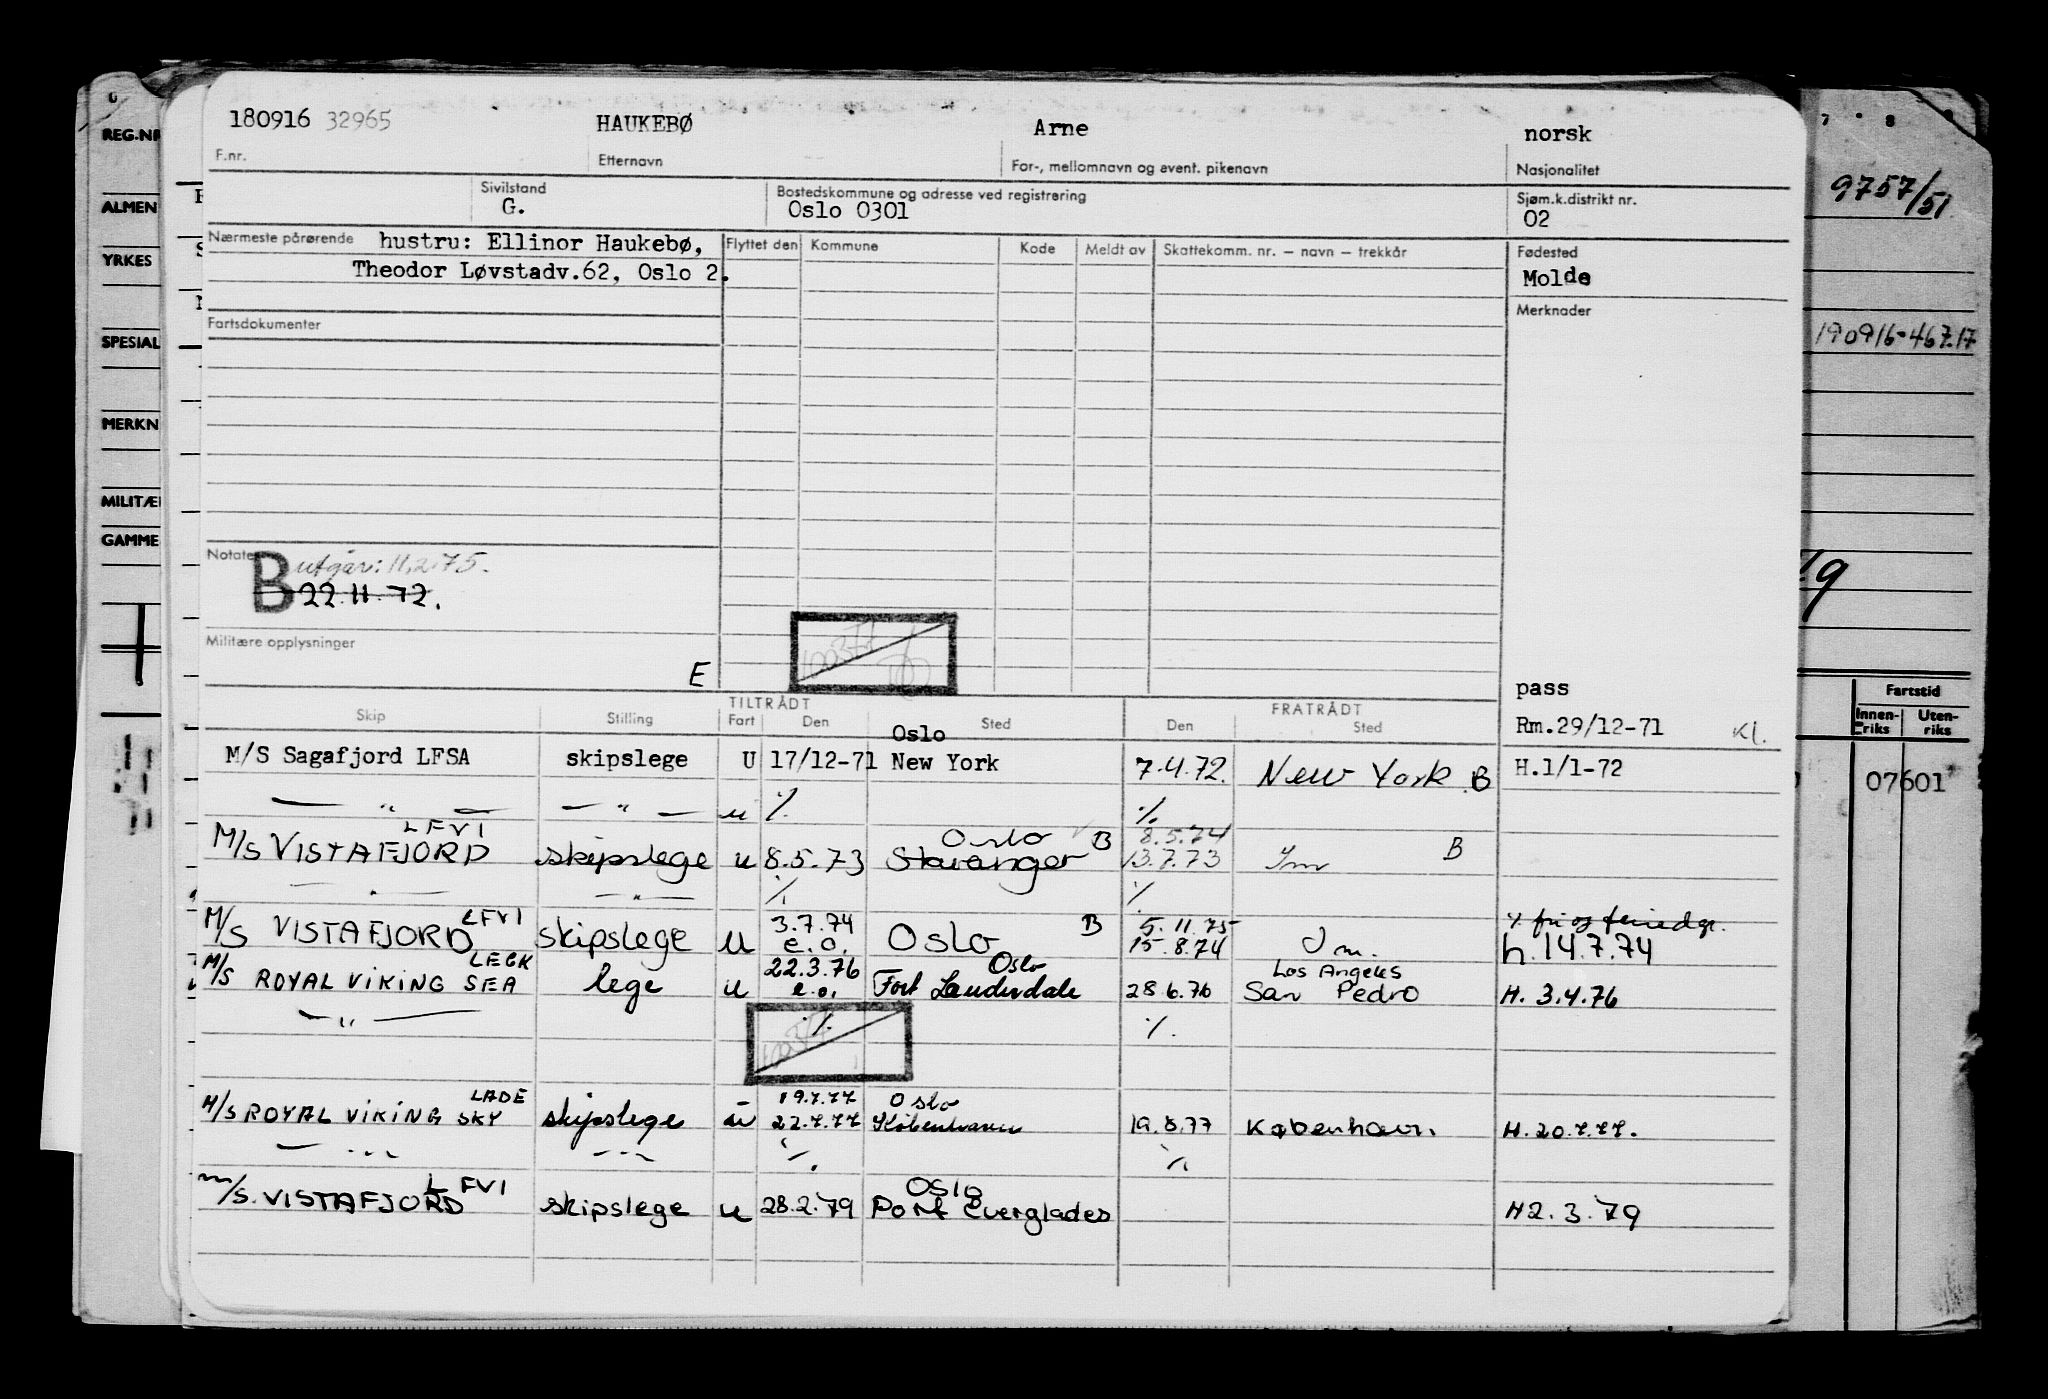 180916 32965 HAUKEBØ Arne norsk
F.nr. Etternavn For-, mellomnavn og event. pikenavn Nasjonalitet
Sivilstand Bostedskommune og adresse ved registrering Sjøm.k.distrikt nr.
G. Oslo 0301 02
Nærmeste pårørende hustru: Ellinor Haukebø, Flyttet den Kommune Kode Meldt av Skattekomm. nr. — navn — trekkår Fødested
Theodor Løvstadv.62, Oslo 2. Molde
Merknader
Fartsdokumenter
Notater
B utgår: 11.2.75.
22.11.72.
Militære opplysninger
E
pass
TILTRÅDT FRATRÅDT
Skip Stilling Fart Den Sted Den Sted Rm.29/12-71 Kl.
Oslo
M/S Sagafjord LFSA skipslege U 17/12-71 New York 7.4.72. New York B H.1/1-72
— " — — " — u %. %.
LFVI Oslo B 8.5.74
M/S VISTAFJORD skipslege u 8.5.73 Stavanger 13.7.73 B
— " — — " — % %
LFVI 3.7.74 B 5.11.75
M/S VISTAFJORD skipslege u e.o. Oslo 15.8.74 h.14.7.74
LEGK 22.3.76 Oslo Los Angeles
M/S ROYAL VIKING SEA lege u e.o. Fort Lauderdale 28.6.76 San Pedro H. 3.4.76
— " — %. %.
LADE 19.7.77 Oslo
M/S ROYAL VIKING SKY skipslege u 22.7.77 København 19.8.77 København. H. 20.7.77.
— " — — " — %. %
LFVI Oslo
m/S. VISTAFJORD skipslege u 28.2.79 Port Everglades H2.3.79
REG.NR
ALMEN
YRKES
SPESIAL
MERKN
MILITÆ
GAMME
7 8
9757/51
190916-467.17
Fartstid
Innen-riks Uten-riks
07601